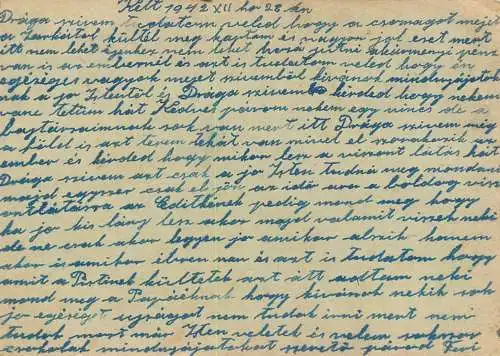 Kelt 1942 XII hó 28 án
Drága szivem tudatom veled hogy a csomagot mejet
a Jankótól kültél meg kaptam és nagyon jol eset mert
itt nem lehet éjenkez nem lehet hozá jutni akármenyi pénz
van is az embernél és azt is tudatom veled hogy én
egéséges vagyok mejet szivemből kivánok mindnyájatok
nak a jo Istentöl is Drága szivem kérded hogy nekem
van tetüm hát Kedves párom nekem egy nincs de a
bajtársaimnak sok van mert itt Drága szivem még
a föld is azt terem tehát van mivel el szorakozik az
ember és kérded hogy mikor lesz a viszont látás hát
Drága szivem azt csak a jo Isten tudná meg mondani
majd egyszer csak el jön az idö ara a boldog visz
ontlátásra az Editkének pedig mond meg hogy
ha jo kis lány lesz akor majd valamit viszek neki
de ne csak akor legyen jo amikor alszik hanem
akor is amikor ében van és azt is tudatom hogy
amit a Pistinek kültetek azt itt adtam neki
mond meg a Papáéknak hogy kivánok nekik sok
jo egéségt ujságot nem tudok irni mert nem
tudok most már Isten veletek és velem sokszor
csokolak mindnyájatokat szeretö párod